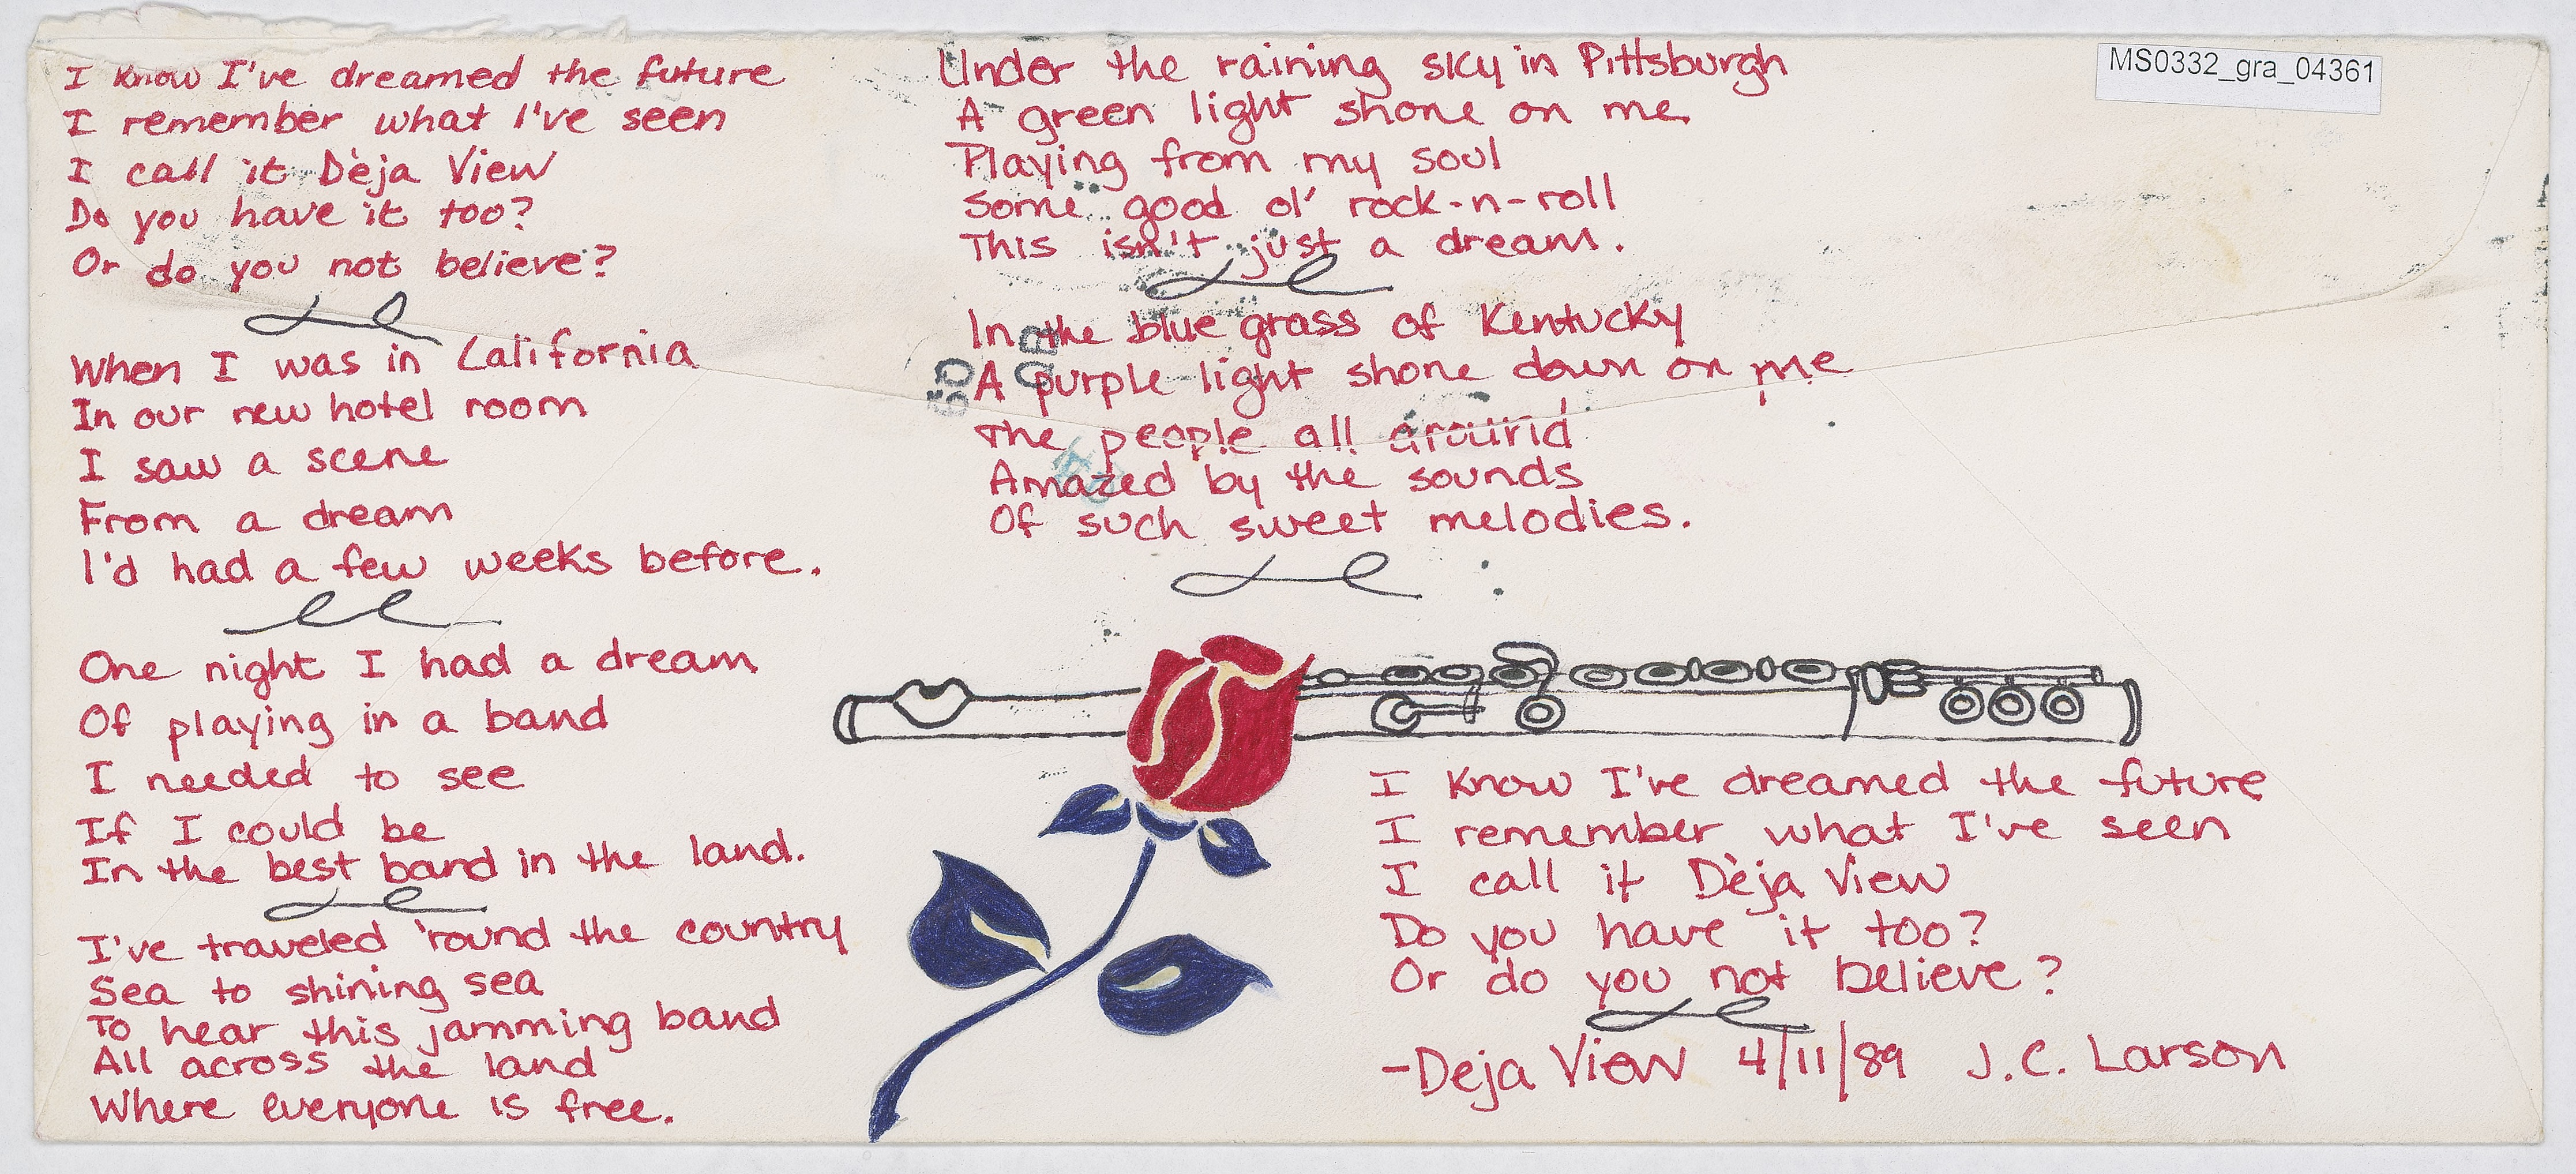 I know I've dreamed the future
I remember what I've seen
I call it Dèja View
Do you have it too?
Or do you not believe?
When I was in California
In our new hotel room
I saw a scene
From a dream
I'd had a few weeks before.
One night I had a dream
Of playing in a band
I needed to see
If I could be
In the best band in the land.
I've traveled 'round the country
Sea to shining sea
To hear this jamming band
All across the land
Where everyone is free.
Under the raining sky in Pittsburgh
A green light shone on me
Playing from my soul
Some good ol' rock-n-roll
This isn't just a dream.
In the blue grass of Kentucky
A purple light shone down on me
The people all around
Amazed by the sounds
Of such sweet melodies.
I know I've dreamed the future
I remember what I've seen
I call it Dèja View
Do you have it too?
Or do you not believe?
-Deja View 4/11/89 J.C. Larson
MS0332_gra_04361